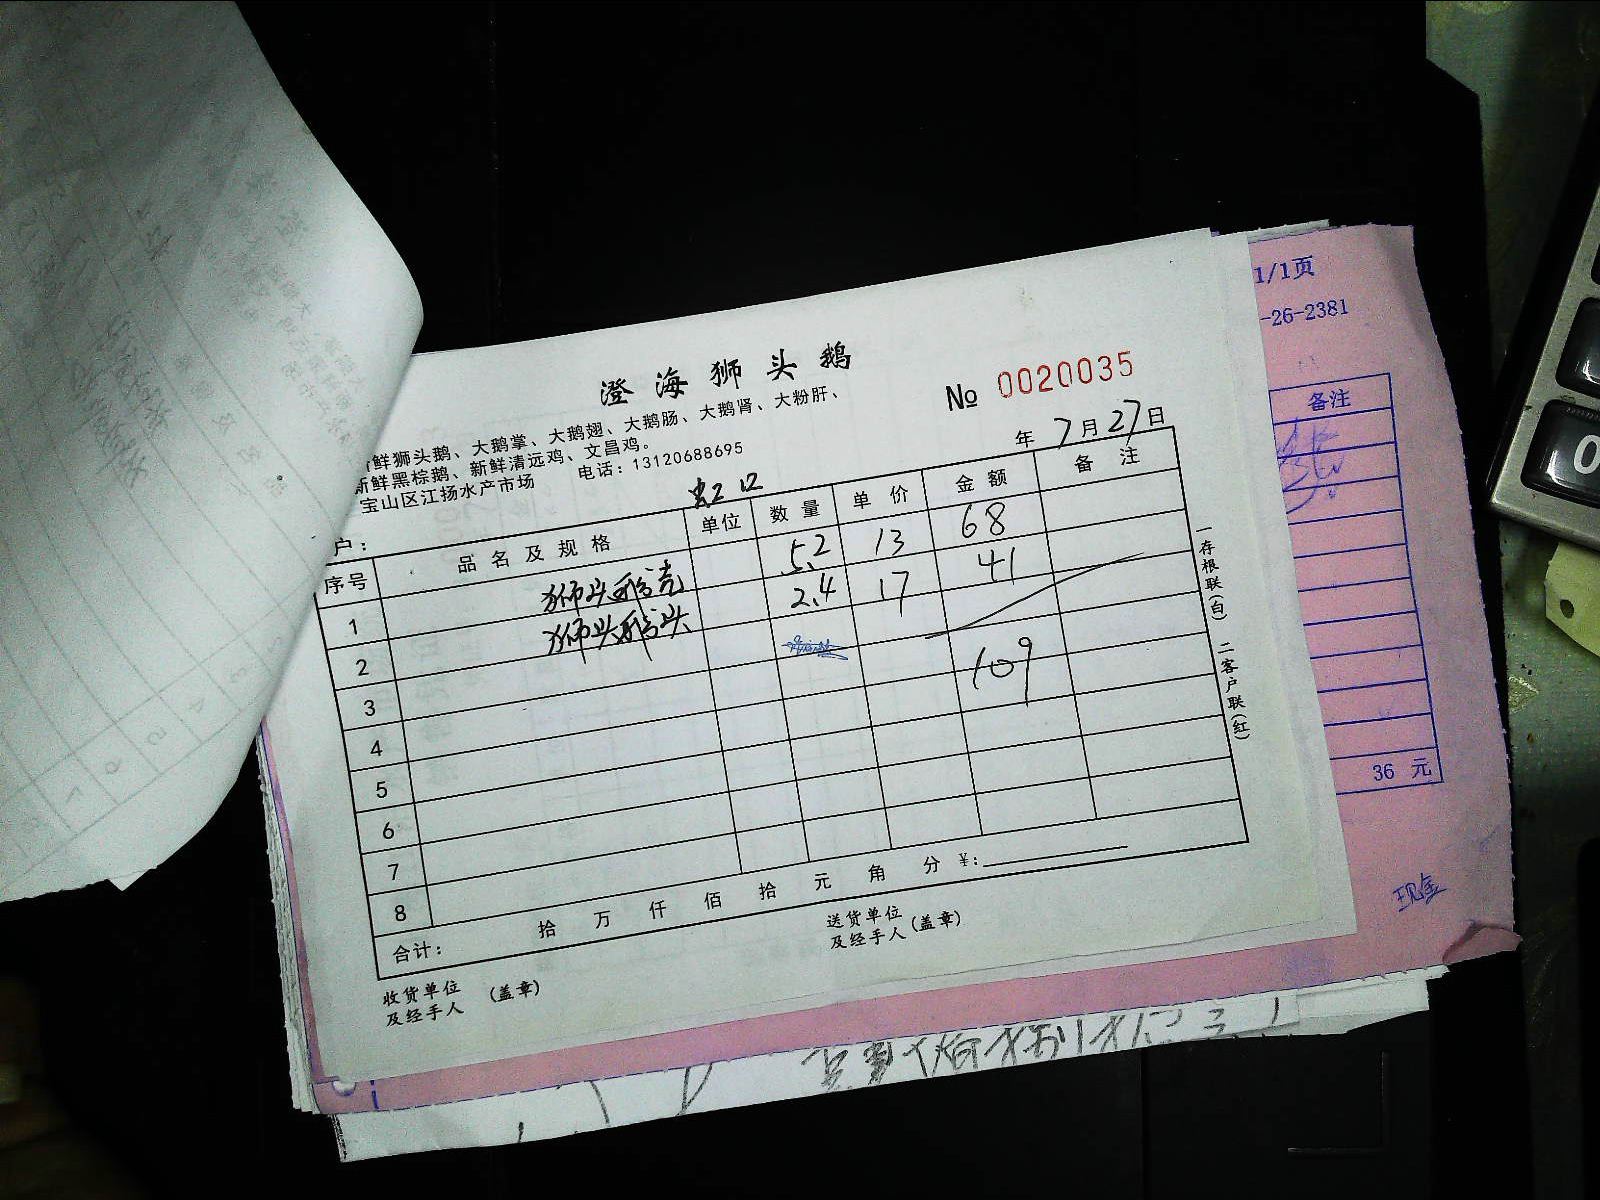 澄海狮头鹅
鲜狮头鹅、大鹅掌、大鹅翅、大鹅肠、大鹅肾、大粉肝、
新鲜黑棕鹅、新鲜清远鸡、文昌鸡。
宝山区江扬水产市场 电话：13120688695
№ 0020035
年 7月27日
户： 虹口
序号 品名及规格 单位 数量 单价 金额 备注
1 狮头鹅壳 5.2 13 68
2 狮头鹅头 2.4 17 41
3
109
4
5
6
7
8
合计： 拾 万 仟 佰 拾 元 角 分 ¥：
收货单位
及经手人 (盖章)
送货单位
及经手人 (盖章)
一存根联(白) 二客户联(红)
1/1页
-26-2381
备注
36 元
现金
0